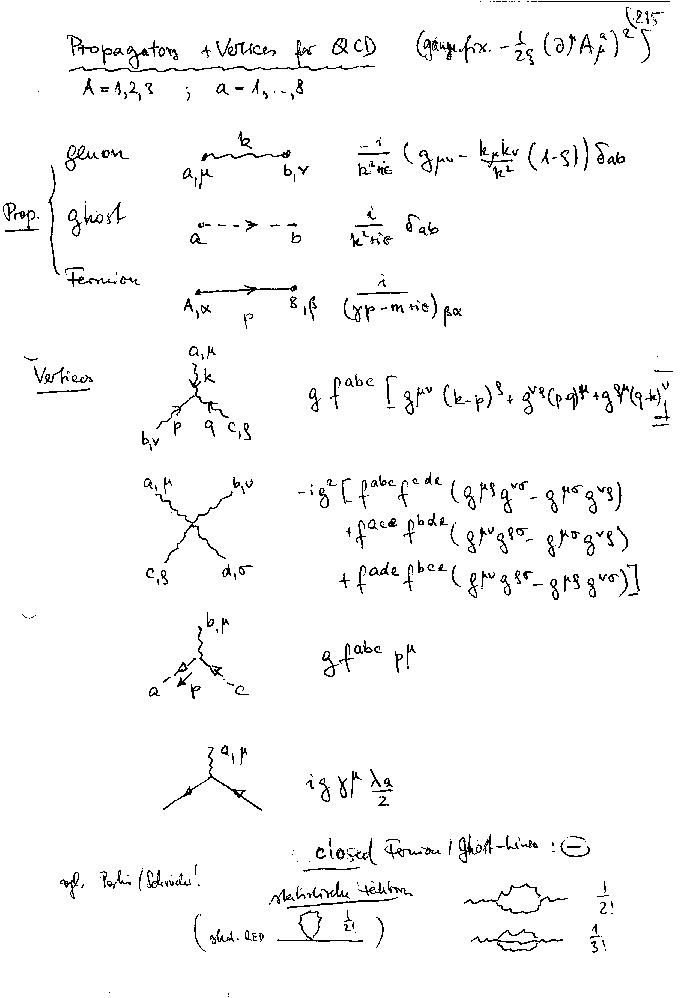 (215
Propagators + Vertices for QCD (gauge fix. - 1/2ξ (∂^μ A_μ^a)^2)
A = 1,2,3 ; a = 1,...,8
Prop.
gluon k a,μ b,ν -i/(k²+iε) (g_μν - k_μ k_ν/k² (1-ξ)) δ_ab
ghost a b i/(k²+iε) δ_ab
Fermion A,α p B,β i/(γp - m + iε)_βα
Vertices
a,μ k b,ν p q c,ρ g f^abc [g^μν (k-p)^ρ + g^νρ (p-q)^μ + g^ρμ (q-k)^ν]
a,μ b,ν -ig² [f^abe f^cde (g^μρ g^νσ - g^μσ g^νρ)
+ f^ace f^bde (g^μν g^ρσ - g^μσ g^νρ)
c,ρ d,σ + f^ade f^bce (g^μν g^ρσ - g^μρ g^νσ)]
b,μ
a p c g f^abc p^μ
a,μ
i g γ^μ λ_a/2
closed Fermion / Ghost-lines : ⊖
vgl. Peskin/Schroeder!
statistische Faktoren
( QED 1/2! ) 1/2!
1/3!